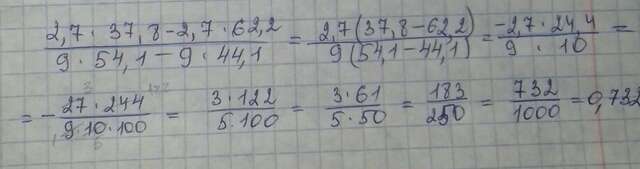 (2,7 · 37,8 - 2,7 · 62,2) / (9 · 54,1 - 9 · 44,1) = 2,7(37,8 - 62,2) / 9(54,1 - 44,1) = (-2,7 · 24,4) / (9 · 10) =
= - (27 · 244) / (9 · 10 · 100) = (3 · 122) / (5 · 100) = (3 · 61) / (5 · 50) = 183 / 250 = 732 / 1000 = 0,732